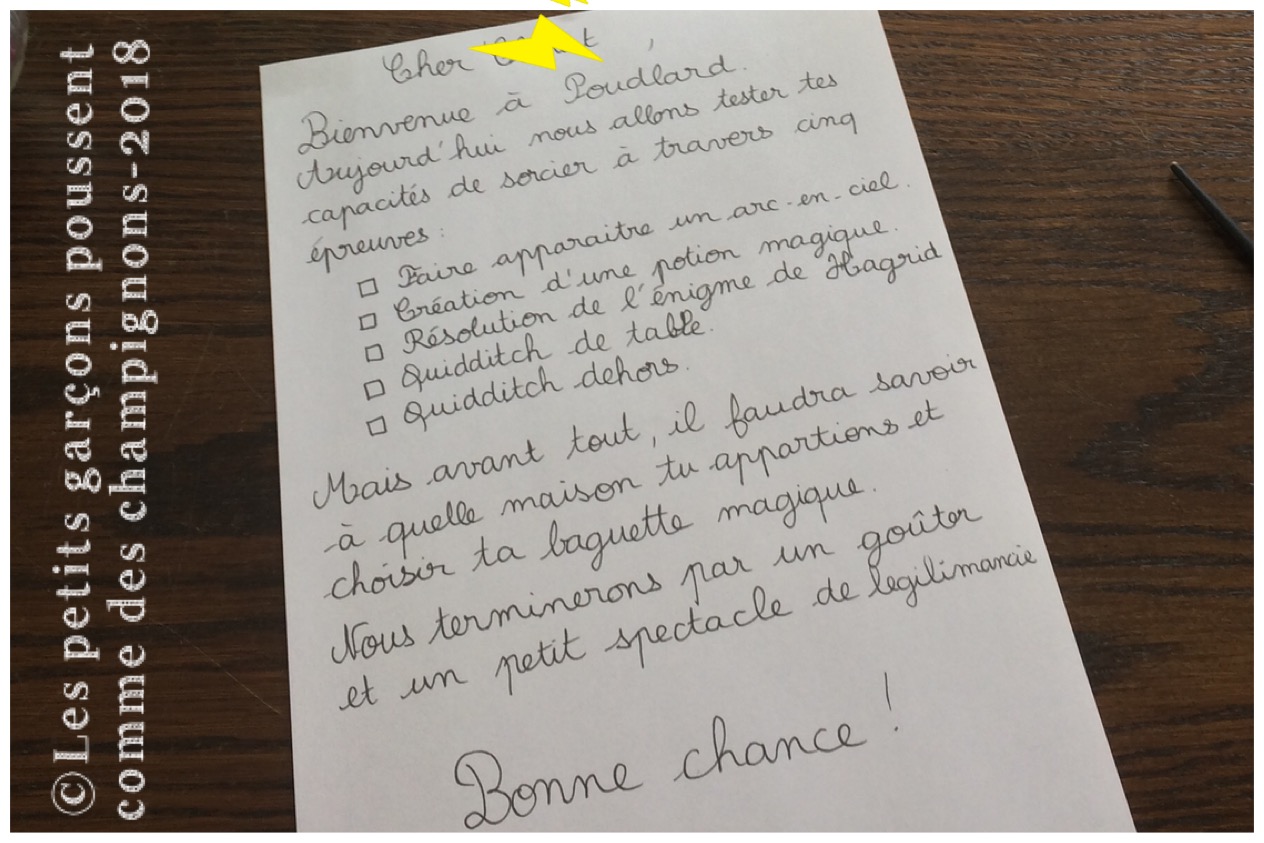 ©Les petits garçons poussent
comme des champignons-2018
Cher
Bienvenue à Poudlard.
Aujourd'hui nous allons tester tes
capacités de sorcier à travers cinq
épreuves :
□ Faire apparaitre un arc-en-ciel.
□ Création d'une potion magique.
□ Résolution de l'énigme de Hagrid
□ Quidditch de table.
□ Quidditch dehors.
Mais avant tout, il faudra savoir
à quelle maison tu appartions et
choisir ta baguette magique.
Nous terminerons par un goûter
et un petit spectacle de legilimancie
Bonne chance !